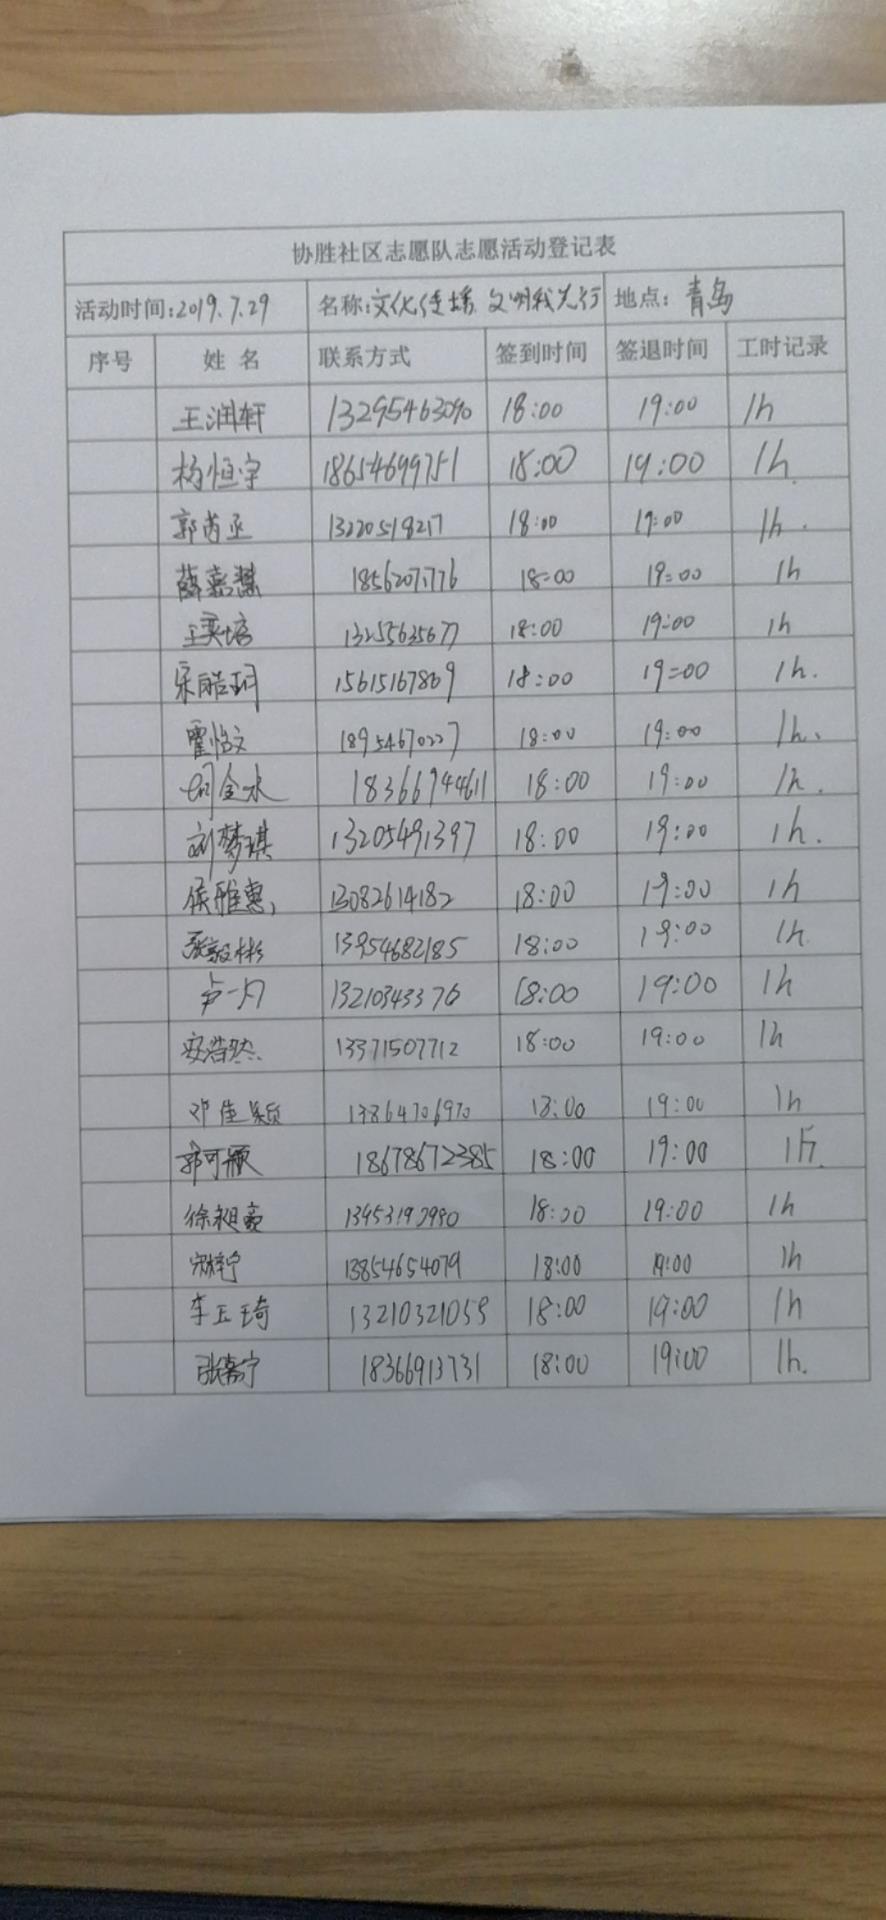 协胜社区志愿队志愿活动登记表
活动时间:2019.7.29 名称:文化传播 文明我先行 地点: 青岛
序号 姓名 联系方式 签到时间 签退时间 工时记录
王润轩 13295463090 18:00 19:00 1h
杨恒宇 18654699751 18:00 19:00 1h
郭芮丞 13220519217 18:00 19:00 1h.
薛嘉慧 18562071776 18:00 19:00 1h
王奕培 13255635677 18:00 19:00 1h
宋皓珂 15615167869 18:00 19:00 1h.
霍怡文 18954670227 18:00 19:00 1h.
金水 18366944611 18:00 19:00 1h.
刘梦琪 13205491397 18:00 19:00 1h.
侯雅惠 13082614182 18:00 19:00 1h
张毅彬 13954682185 18:00 19:00 1h
卢一 13210343376 18:00 19:00 1h
安浩然 13371507712 18:00 19:00 1h
邓佳颖 13864706970 18:00 19:00 1h
郭可顺 18678672385 18:00 19:00 1h.
徐昶豪 18:00 19:00 1h
宋梓宁 13854654079 18:00 19:00 1h
李玉琦 13210321059 18:00 19:00 1h
张嘉宁 18366913731 18:00 19:00 1h.